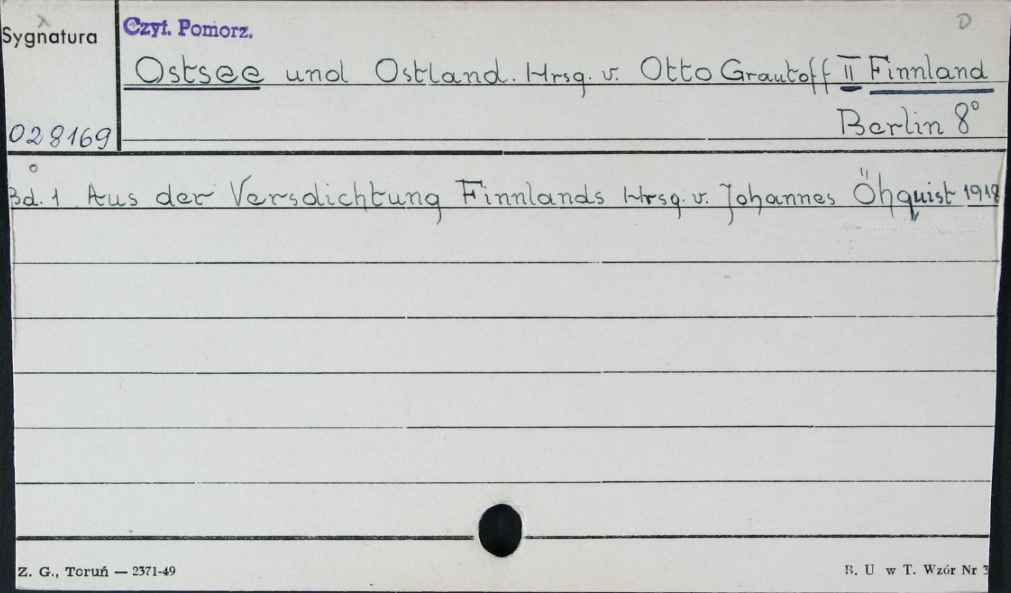 Sygnatura
Czyt. Pomorz.
D
Ostsee und Ostland. Hrsg. v. Otto Grautoff II Finnland
028169
Berlin 8°
Bd. 1 Aus der Versdichtung Finnlands Hrsg. v. Johannes Öhquist 1918
Z. G., Toruń — 2371-49
B. U w T. Wzór Nr 3